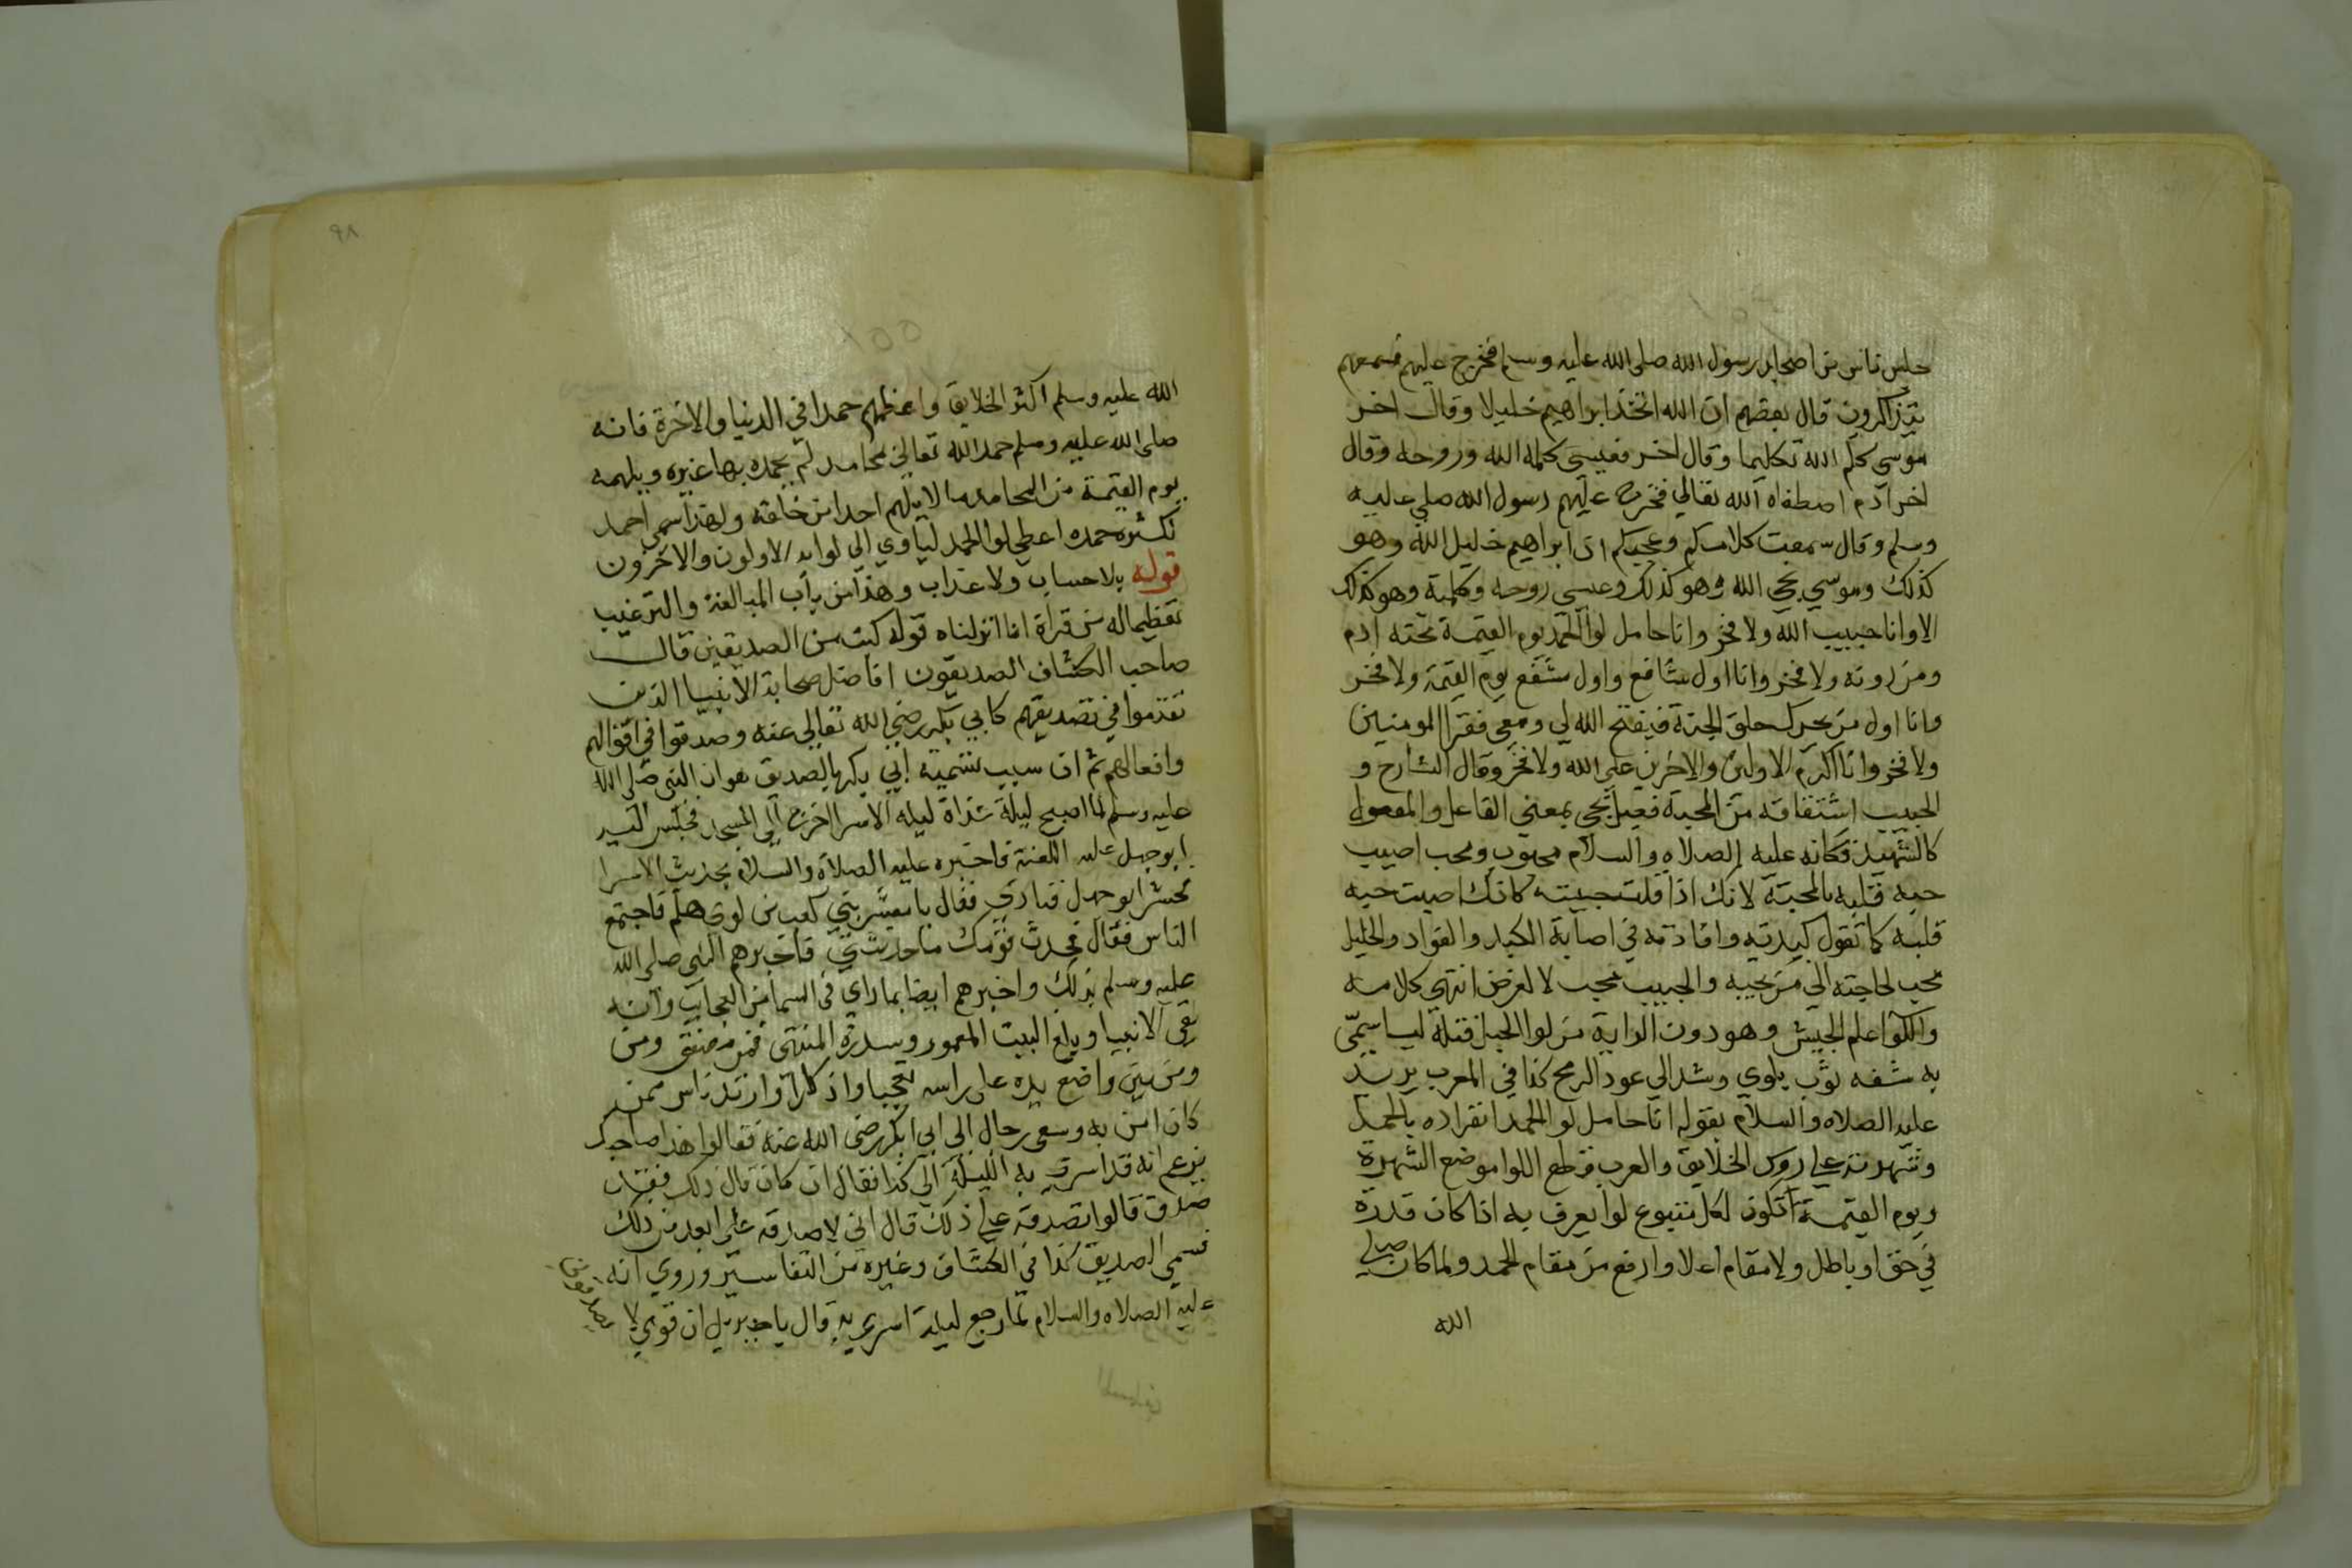 جلس ناس من اصحاب رسول الله صلى الله عليه وسلم فخرج عليهم فسمعهم
يتذاكرون قال بعضهم ان الله اتخذ ابراهيم خليلا وقال اخر
موسي كلم الله تكليما وقال اخر فعيسى كلمة الله وروحه وقال
اخر ادم اصطفاه الله تعالي فخرج عليهم رسول الله صلي عليه
وسلم وقال سمعت كلامكم وعجبكم ان ابراهيم خليل الله وهو
كذلك وموسي نجي الله وهو كذلك وعيسي روحه وكلمته وهو كذلك
الا وانا حبيب الله ولا فخر وانا حامل لوا الحمد يوم القيمة تحته ادم
ومن دونه ولا فخر وانا اول شافع واول مشفع يوم القيمة ولا فخر
وانا اول من يحرك حلق الجنة فيفتح الله لي ومعي فقرا المومنين
ولا فخر وانا اكرم الاولين والاخرين علي الله ولا فخر وقال الشارح و
الحبيب اشتقاقه من المحبة فعيل يجي بمعني الفاعل والمفعول
كالشهيد فكانه عليه الصلاه والسلام محبوب ومحب اصيب
حبة قلبه بالمحبة لانك اذا قلت حببته كانك اصبت حبه
قلبه كما تقول كبدته وافادته في اصابة الكبد والفواد والخليل
محب لحاجته الي من يحبه والحبيب محب لا لغرض انتهى كلامه
واللوا علم الجيش وهو دون الراية من لوا الحبل فتله ليا سمّى
به شقه ثوب يلوي وشد الي عود الرمح كذا في المغرب يريد
عليه الصلاه والسلام بقوله انا حامل لوا الحمد انفراده بالحمد
وشهرته علي روس الخلايق والعرب تضع اللوا موضع الشهرة
ويوم القيمة تكون لكل متبوع لوا يعرف به اذا كان قدره
في حق او باطل ولا مقام اعلا وارفع من مقام الحمد ولما كان صلي
الله
٩٨
الله عليه وسلم اكثر الخلايق واعظمهم حمدا في الدنيا والاخرة فانه
صلى الله عليه وسلم حمد الله تعالى بمحامد لم يحمده بها غيره ويلهمه
يوم القيمة من المحامد ما لا يلهم احدا من خلقه ولهذا سمي احمد
لكثرة حمده اعطي لوا الحمد لياوي الي لوايه الاولون والاخرون
قوله بلا حساب ولا عذاب وهذا من باب المبالغة والترغيب
تعظيما له من قراة انا انزلناه قوله كتب من الصديقين قال
صاحب الكشاف الصديقون افاضل صحابة الانبيا الذين
تقدموا في تصديقهم كابي بكر رضي الله تعالى عنه وصدقوا في اقوالهم
وافعالهم ثم ان سبب تسمية ابي بكر بالصديق هو ان النبي صلى الله
عليه وسلم لما اصبح ليلة غداة ليله الاسرا خرج الي المسجد فجلس اليه
ابو جهل عليه اللعنة فاخبره عليه الصلاة والسلام بحديث الاسرا
ابو جهل فنادي فقال يا معشر بني كعب بن لوي هلم فاجتمع
الناس فقال فحدث قومك ما حدثتني فاخبرهم النبي صلى الله
عليه وسلم بذلك واخبرهم ايضا بما راي في السما من العجايب وانه
لقي الانبيا وبلغ البيت المعمور وسدرة المنتهى فمن مصفق ومن
ومن بين واضع يده على راسه تعجبا وانكارا وارتد ناس ممن
كان امن به وسعى رجال الي ابي بكر رضى الله عنه فقالوا هذا صاحبك
يزعم انه قد اسري به الليلة الى كذا فقال ان كان قال ذلك فقد
صدق قالوا تصدقه علي ذلك قال اني لاصدقه على ابعد من ذلك
فسمي الصديق كذا في الكشاف وغيره من التفاسير وروي انه
عليه الصلاه والسلام لما رجع ليلة اسري به قال يا جبريل ان قومي لا